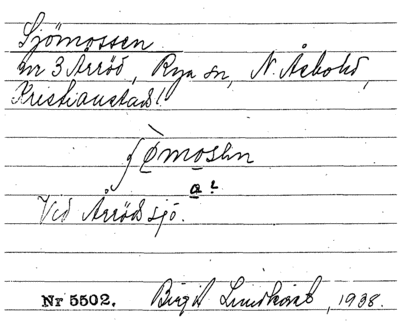 Sjömossen
nr 3 Årröd, Rya sn, N. Åsbohd,
Kristianstads l.
ʃö̀mosən
a
Vid Årröds sjö.
Nr 5502. Birgit Lundkvist, 1938.